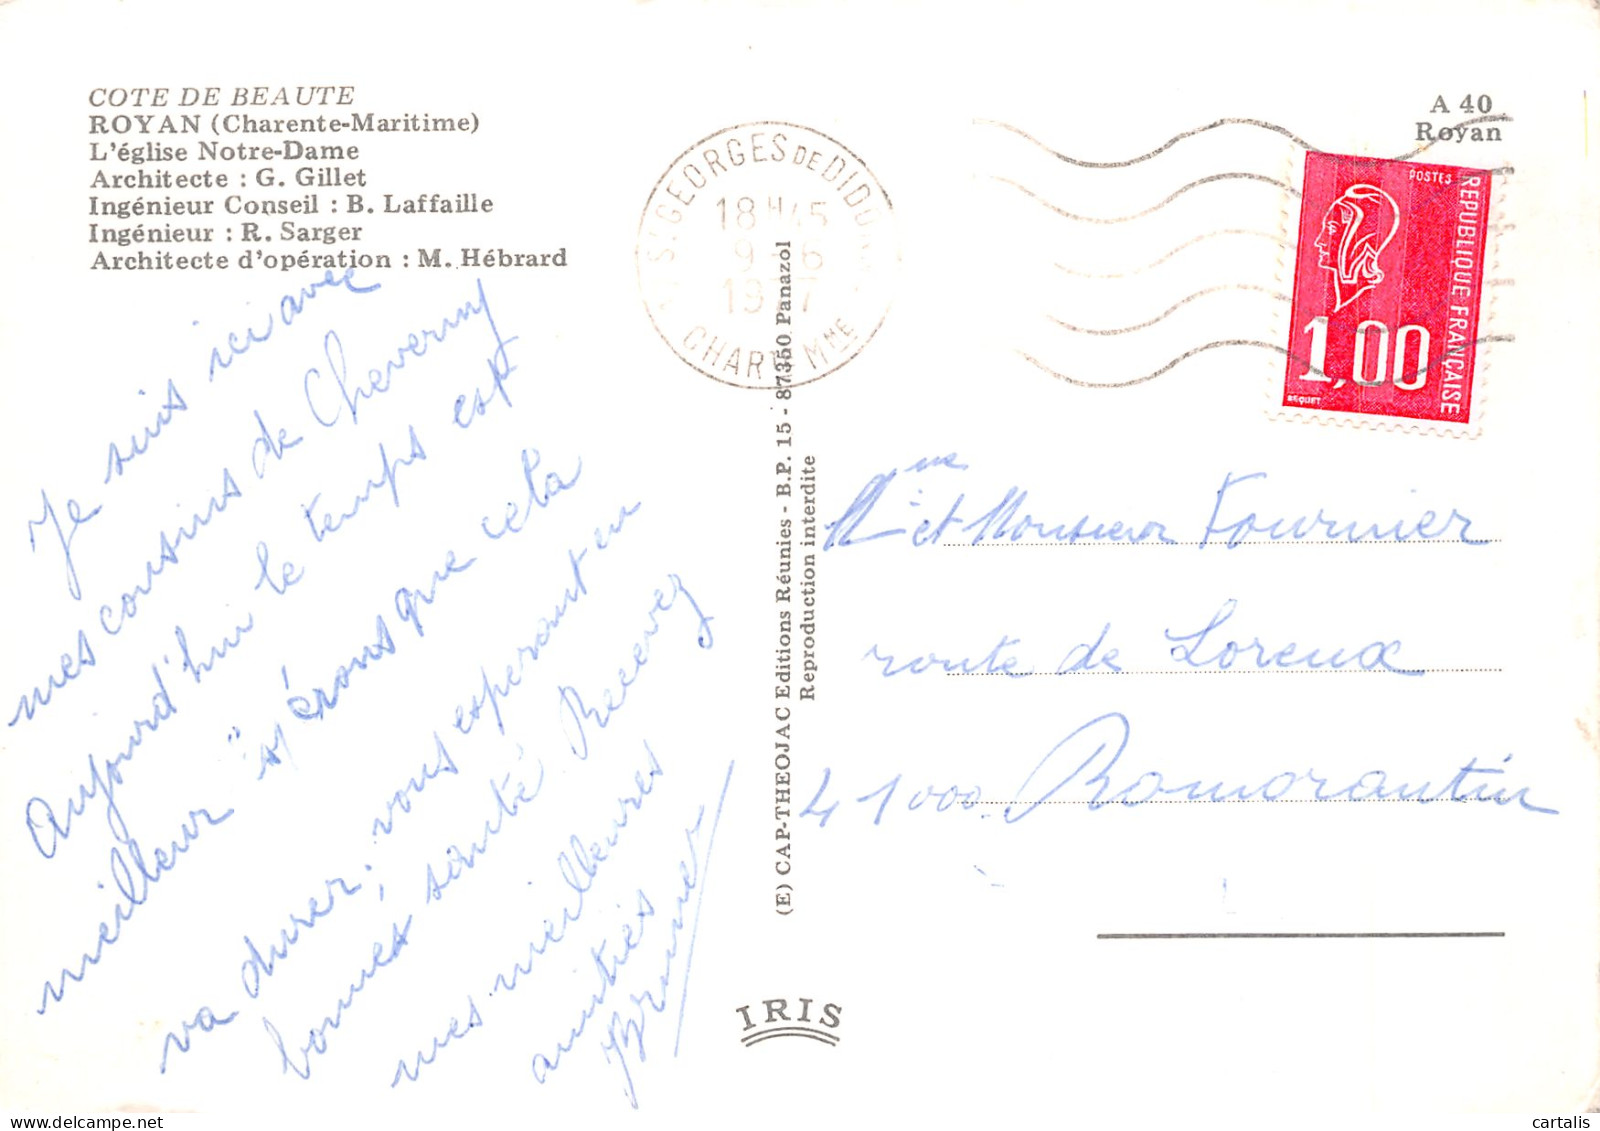 COTE DE BEAUTE
ROYAN (Charente-Maritime)
L'église Notre-Dame
Architecte : G. Gillet
Ingénieur Conseil : B. Laffaille
Ingénieur : R. Sarger
Architecte d'opération : M. Hébrard
Je suis ici avec
mes cousins de Cheverny
Aujourd'hui le temps est
meilleur espérons que cela
va durer, vous esperant en
bonnes santé Recevez
mes meilleures
amitiés
ST GEORGES DE DIDO
18 H 45
9 - 6
19 7
CHARTE MME
(E) CAP-THEOJAC Editions Réunies - B.P. 15 - 87350 Panazol
Reproduction interdite
IRIS
A 40
Royan
POSTES
REPUBLIQUE FRANÇAISE
1,00
BEQUET
Mme et Monsieur Fournier
route de Loreux
41000 Romorantin
cartalis
delcampe.net